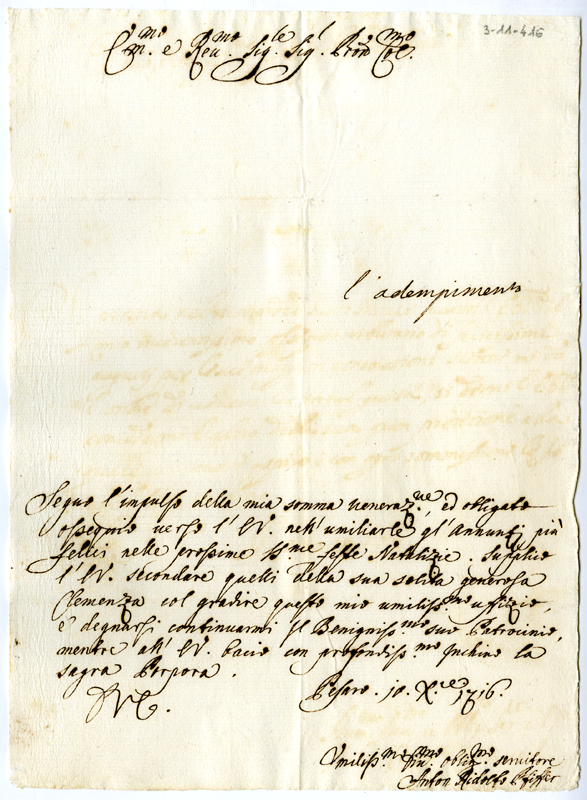 3-11-416
Em.mo e Reu.mo Sig.re Sig.r Pron Col.mo
l'adempimento
Seguo l'impulso della mia somma veneraz.ne, ed obligato
ossequio verso l'E.V. nell'umiliarle gl'Annunzi più
felici nelle prossime SS.me Feste Natalizie. Supplico
l'E.V. secondare quelli della sua solita generosa
Clemenza col gradire questo mio umiliss.mo uffizio,
e degnarsi continuarmi Il Benigniss.mo suo Patrocinio,
mentre all'E.V. bacio con profondiss.mo Inchino la
sagra Porpora.
Pesaro. 10. X.re 1716.
Umiliss.mo obligmo servitore
Anton Ridolfo Pfiffer